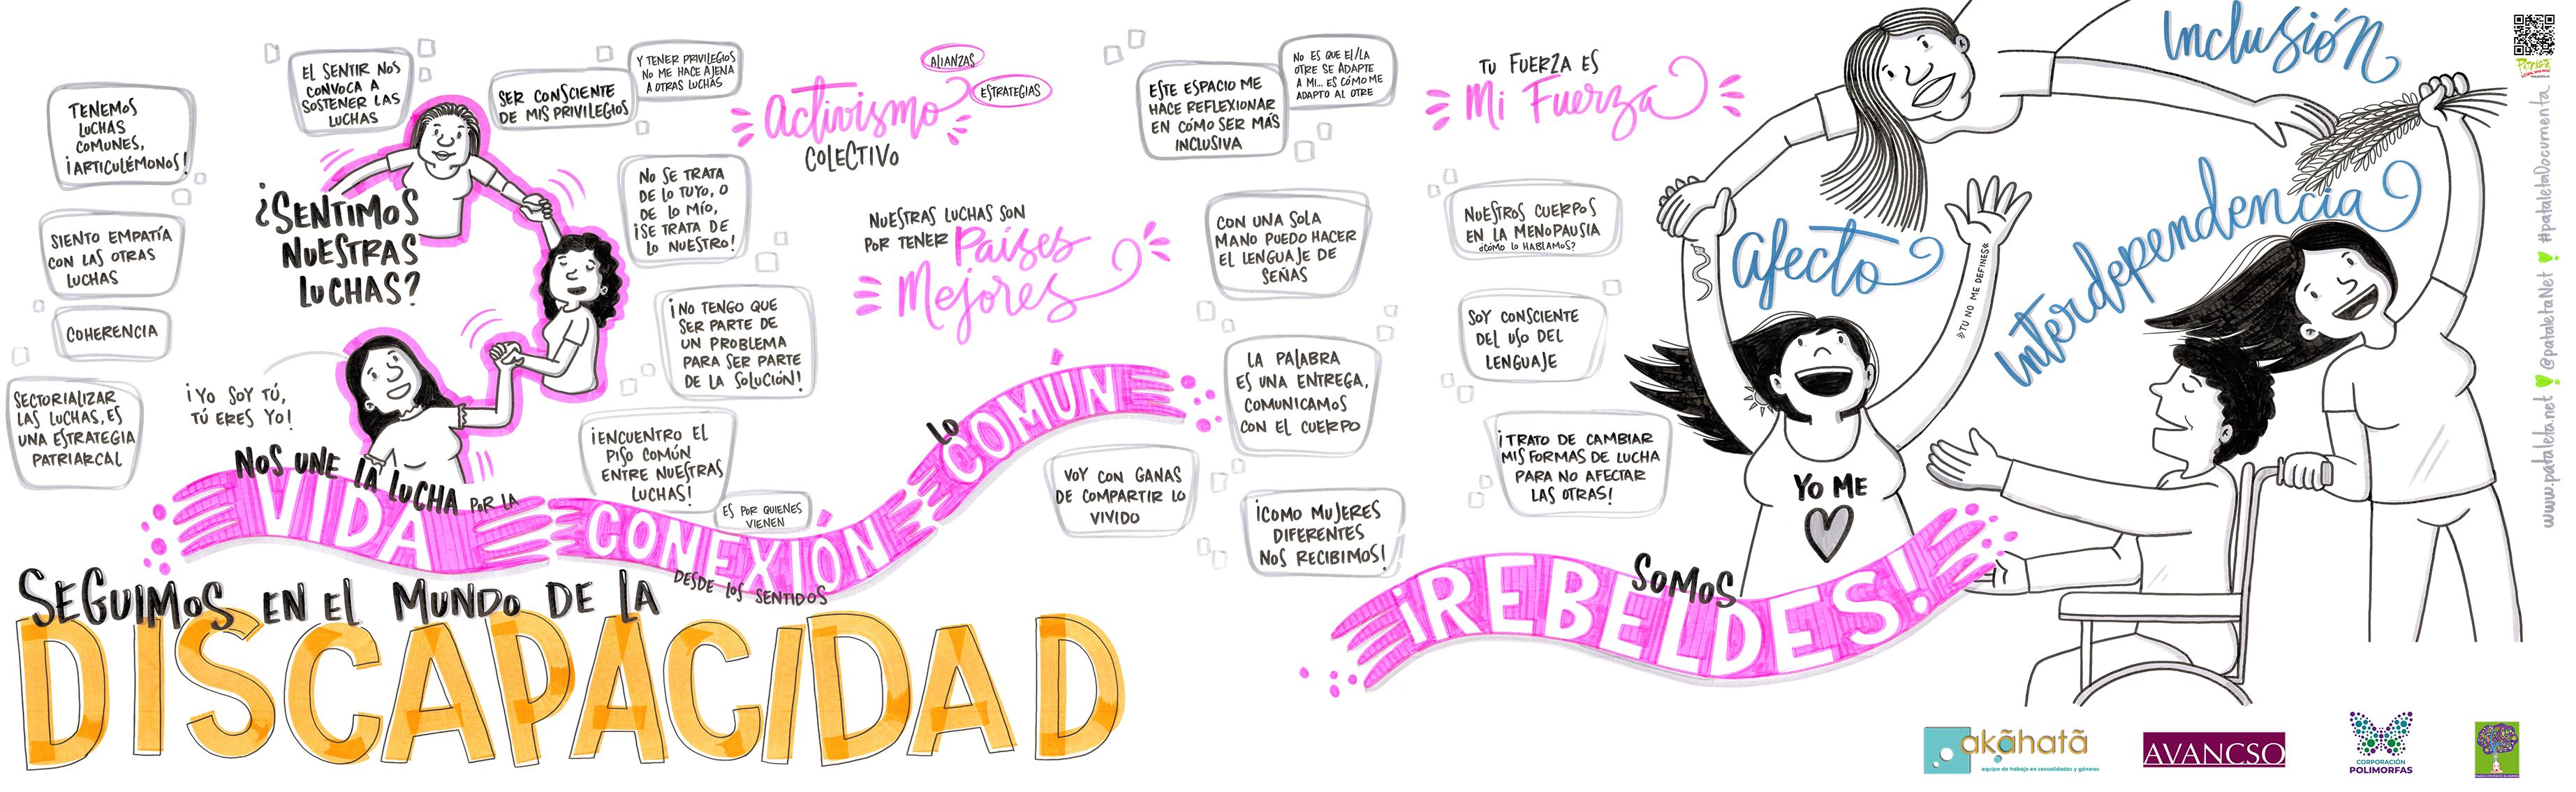 TENEMOS
LUCHAS
COMUNES,
¡ARTICULÉMONOS!
SIENTO EMPATÍA
CON LAS OTRAS
LUCHAS
COHERENCIA
SECTORIALIZAR
LAS LUCHAS, ES
UNA ESTRATEGIA
PATRIARCAL
EL SENTIR NOS
CONVOCA A
SOSTENER LAS
LUCHAS
SER CONSCIENTE
DE MIS PRIVILEGIOS
Y TENER PRIVILEGIOS
NO ME HACE AJENA
A OTRAS LUCHAS
¿SENTIMOS
NUESTRAS
LUCHAS?
¡YO SOY TÚ,
TÚ ERES YO!
NO SE TRATA
DE LO TUYO, O
DE LO MÍO,
¡SE TRATA DE
LO NUESTRO!
¡NO TENGO QUE
SER PARTE DE
UN PROBLEMA
PARA SER PARTE
DE LA SOLUCIÓN!
¡ENCUENTRO EL
PISO COMÚN
ENTRE NUESTRAS
LUCHAS!
ES POR QUIENES
VIENEN
ALIANZAS
ESTRATEGIAS
Activismo
COLECTIVO
NUESTRAS LUCHAS SON
POR TENER Países
Mejores
NOS UNE LA LUCHA POR LA
VIDA
CONEXIÓN
DESDE LOS SENTIDOS
LO
COMÚN
SEGUIMOS EN EL MUNDO DE LA
DISCAPACIDAD
ESTE ESPACIO ME
HACE REFLEXIONAR
EN CÓMO SER MÁS
INCLUSIVA
NO ES QUE EL/LA
OTRE SE ADAPTE
A MI... ES CÓMO ME
ADAPTO AL OTRE
CON UNA SOLA
MANO PUEDO HACER
EL LENGUAJE DE
SEÑAS
LA PALABRA
ES UNA ENTREGA,
COMUNICAMOS
CON EL CUERPO
VOY CON GANAS
DE COMPARTIR LO
VIVIDO
¡COMO MUJERES
DIFERENTES
NOS RECIBIMOS!
TU FUERZA ES
Mi Fuerza
NUESTROS CUERPOS
EN LA MENOPAUSIA
¿CÓMO LO HABLAMOS?
SOY CONSCIENTE
DEL USO DEL
LENGUAJE
¡TRATO DE CAMBIAR
MIS FORMAS DE LUCHA
PARA NO AFECTAR
LAS OTRAS!
SOMOS
¡REBELDES!
Inclusión
Afecto
Interdependencia
TU NO ME DEFINES
YO ME
akãhatã
equipo de trabajo en sexualidades y géneros
AVANCSO
CORPORACIÓN
POLIMORFAS
www.pataleta.net @pataletaNet #pataletaDocumenta